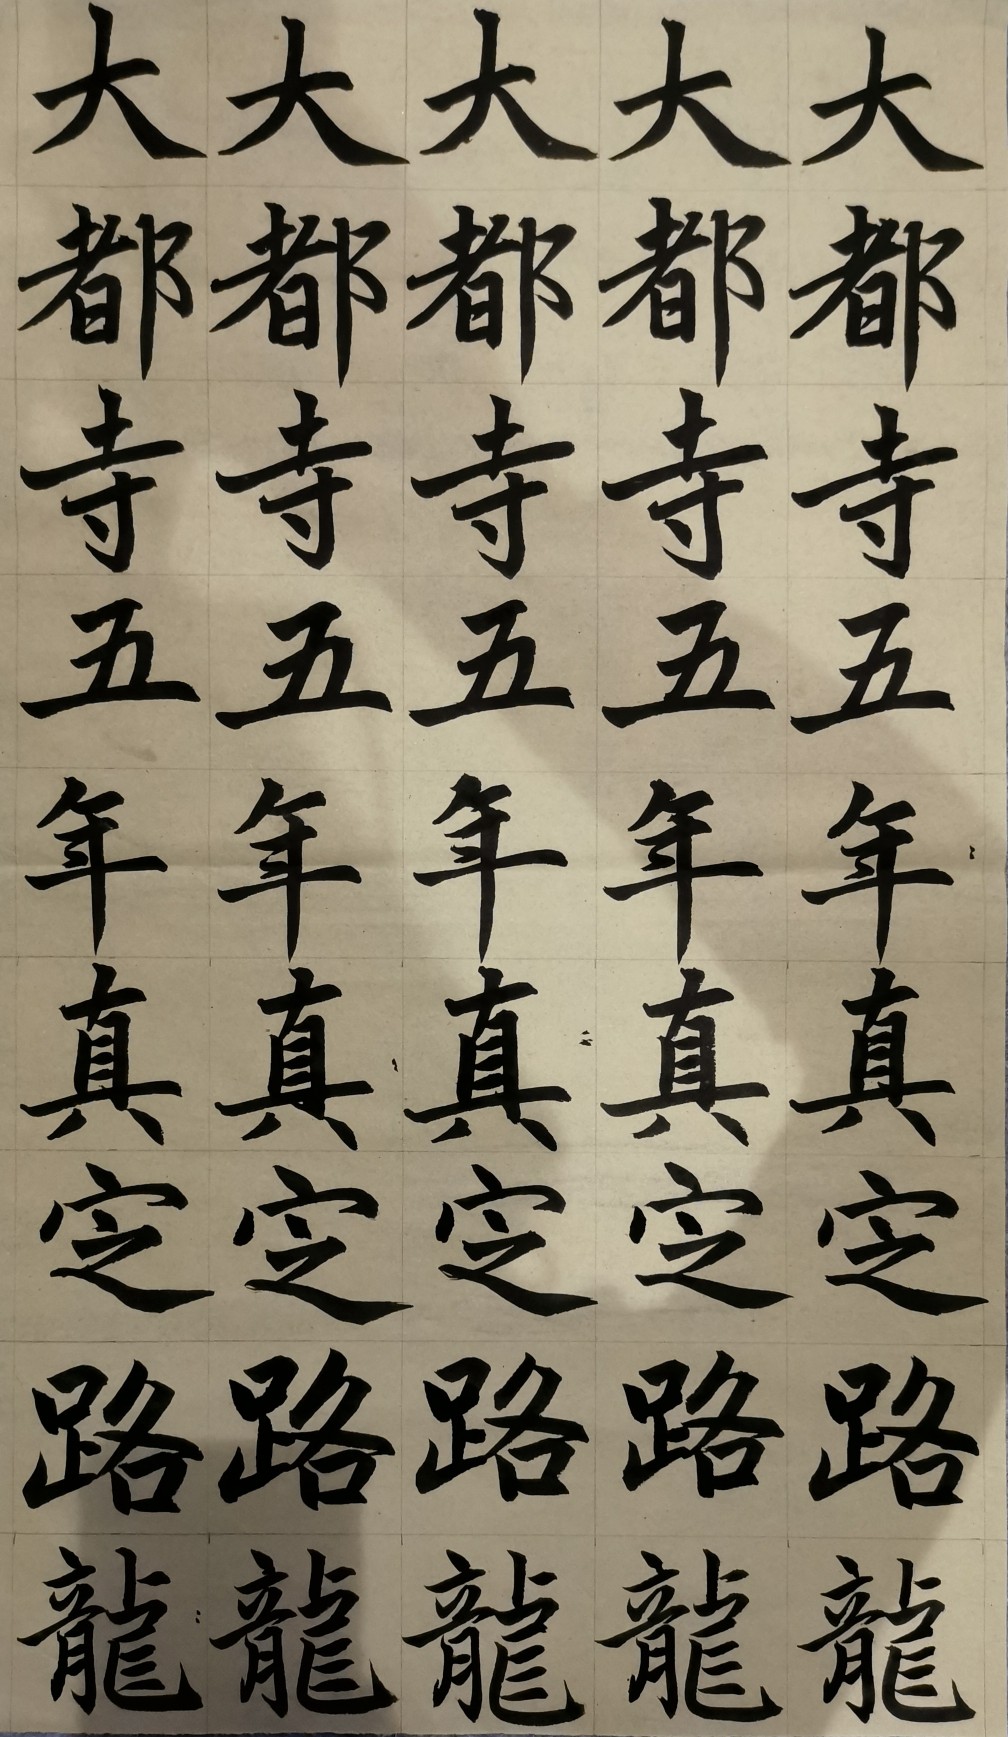 大都寺五年真定路龍
大都寺五年真定路龍
大都寺五年真定路龍
大都寺五年真定路龍
大都寺五年真定路龍